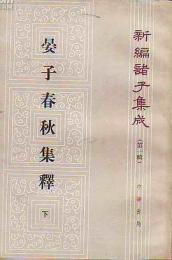 新編諸子集成
（第一輯）
中華書局
晏子春秋集釋
下